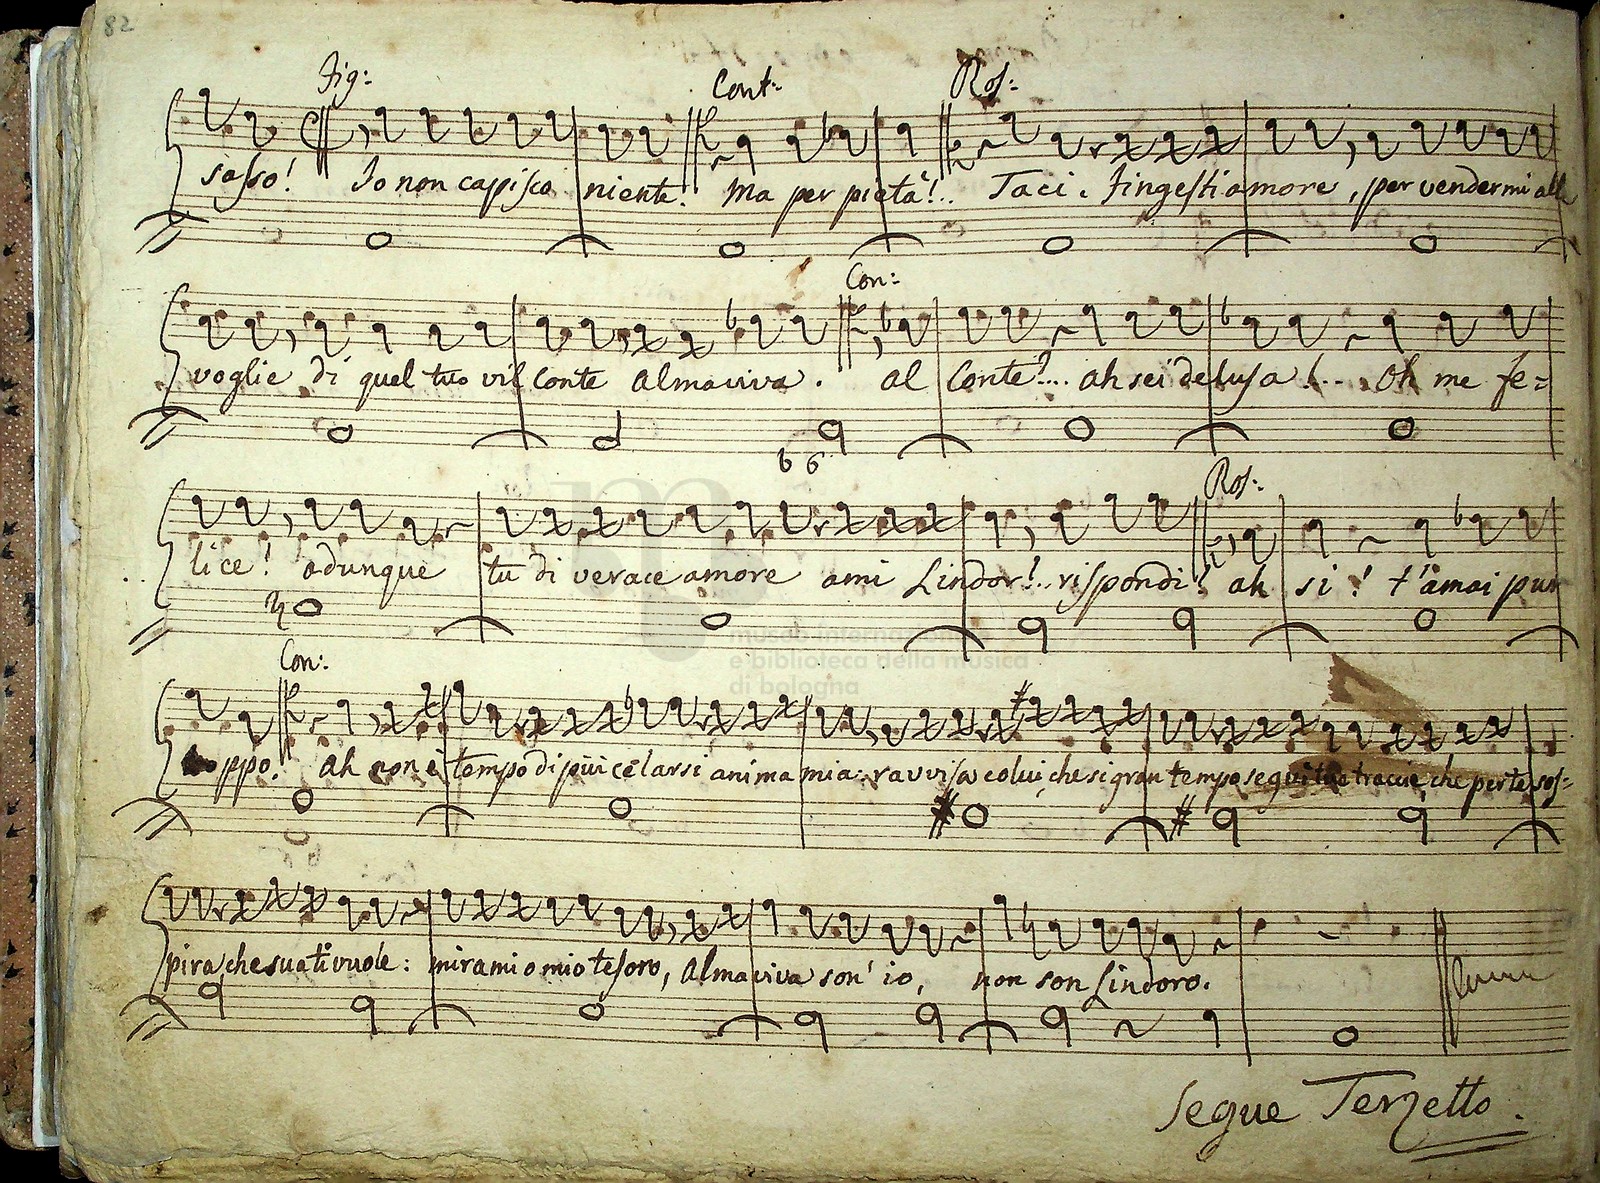 82
Fig: Cont: Ros:
sasso! Io non capisco niente. ma per pietà!.. Taci. fingesti amore, per vendermi alle
Con:
voglie di quel tuo vil Conte Almaviva. al Conte?... ah sei delusa!... Oh me fe=
b 6
Ros:
lice! adunque tu di verace amore ami Lindor!.. rispondi! ah si! t'amai pur
Con:
troppo! ah non è tempo di piùi celarsi anima mia: ravvisa colui che si gran tempo seguì tue traccie che per te sos=
museo internazionale
e biblioteca della musica
di bologna
pira che sua ti vuole: mirami o mio tesoro, Almaviva son' io, non son Lindoro.
Segue Terzetto.